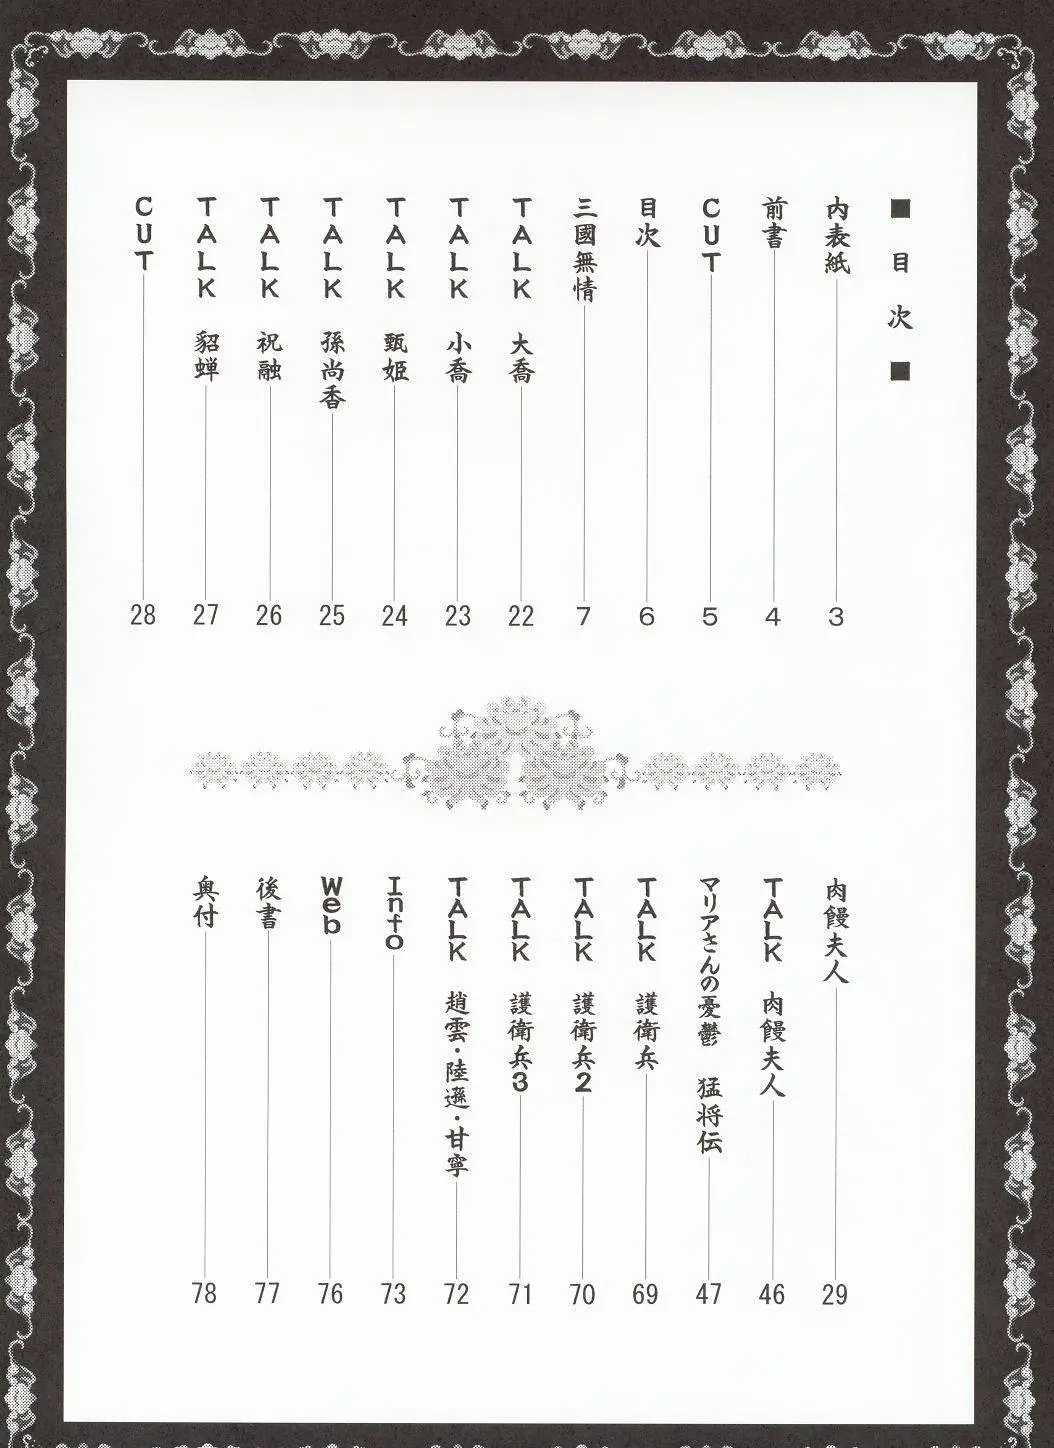 ■目次■
内表紙 3
前書 4
CUT 5
目次 6
三國無情 7
TALK 大喬 22
TALK 小喬 23
TALK 甄姫 24
TALK 孫尚香 25
TALK 祝融 26
TALK 貂蝉 27
CUT 28
肉饅夫人 29
TALK 肉饅夫人 46
マリアさんの憂鬱 猛将伝 47
TALK 護衛兵 69
TALK 護衛兵2 70
TALK 護衛兵3 71
TALK 趙雲・陸遜・甘寧 72
Info 73
Web 76
後書 77
奥付 78